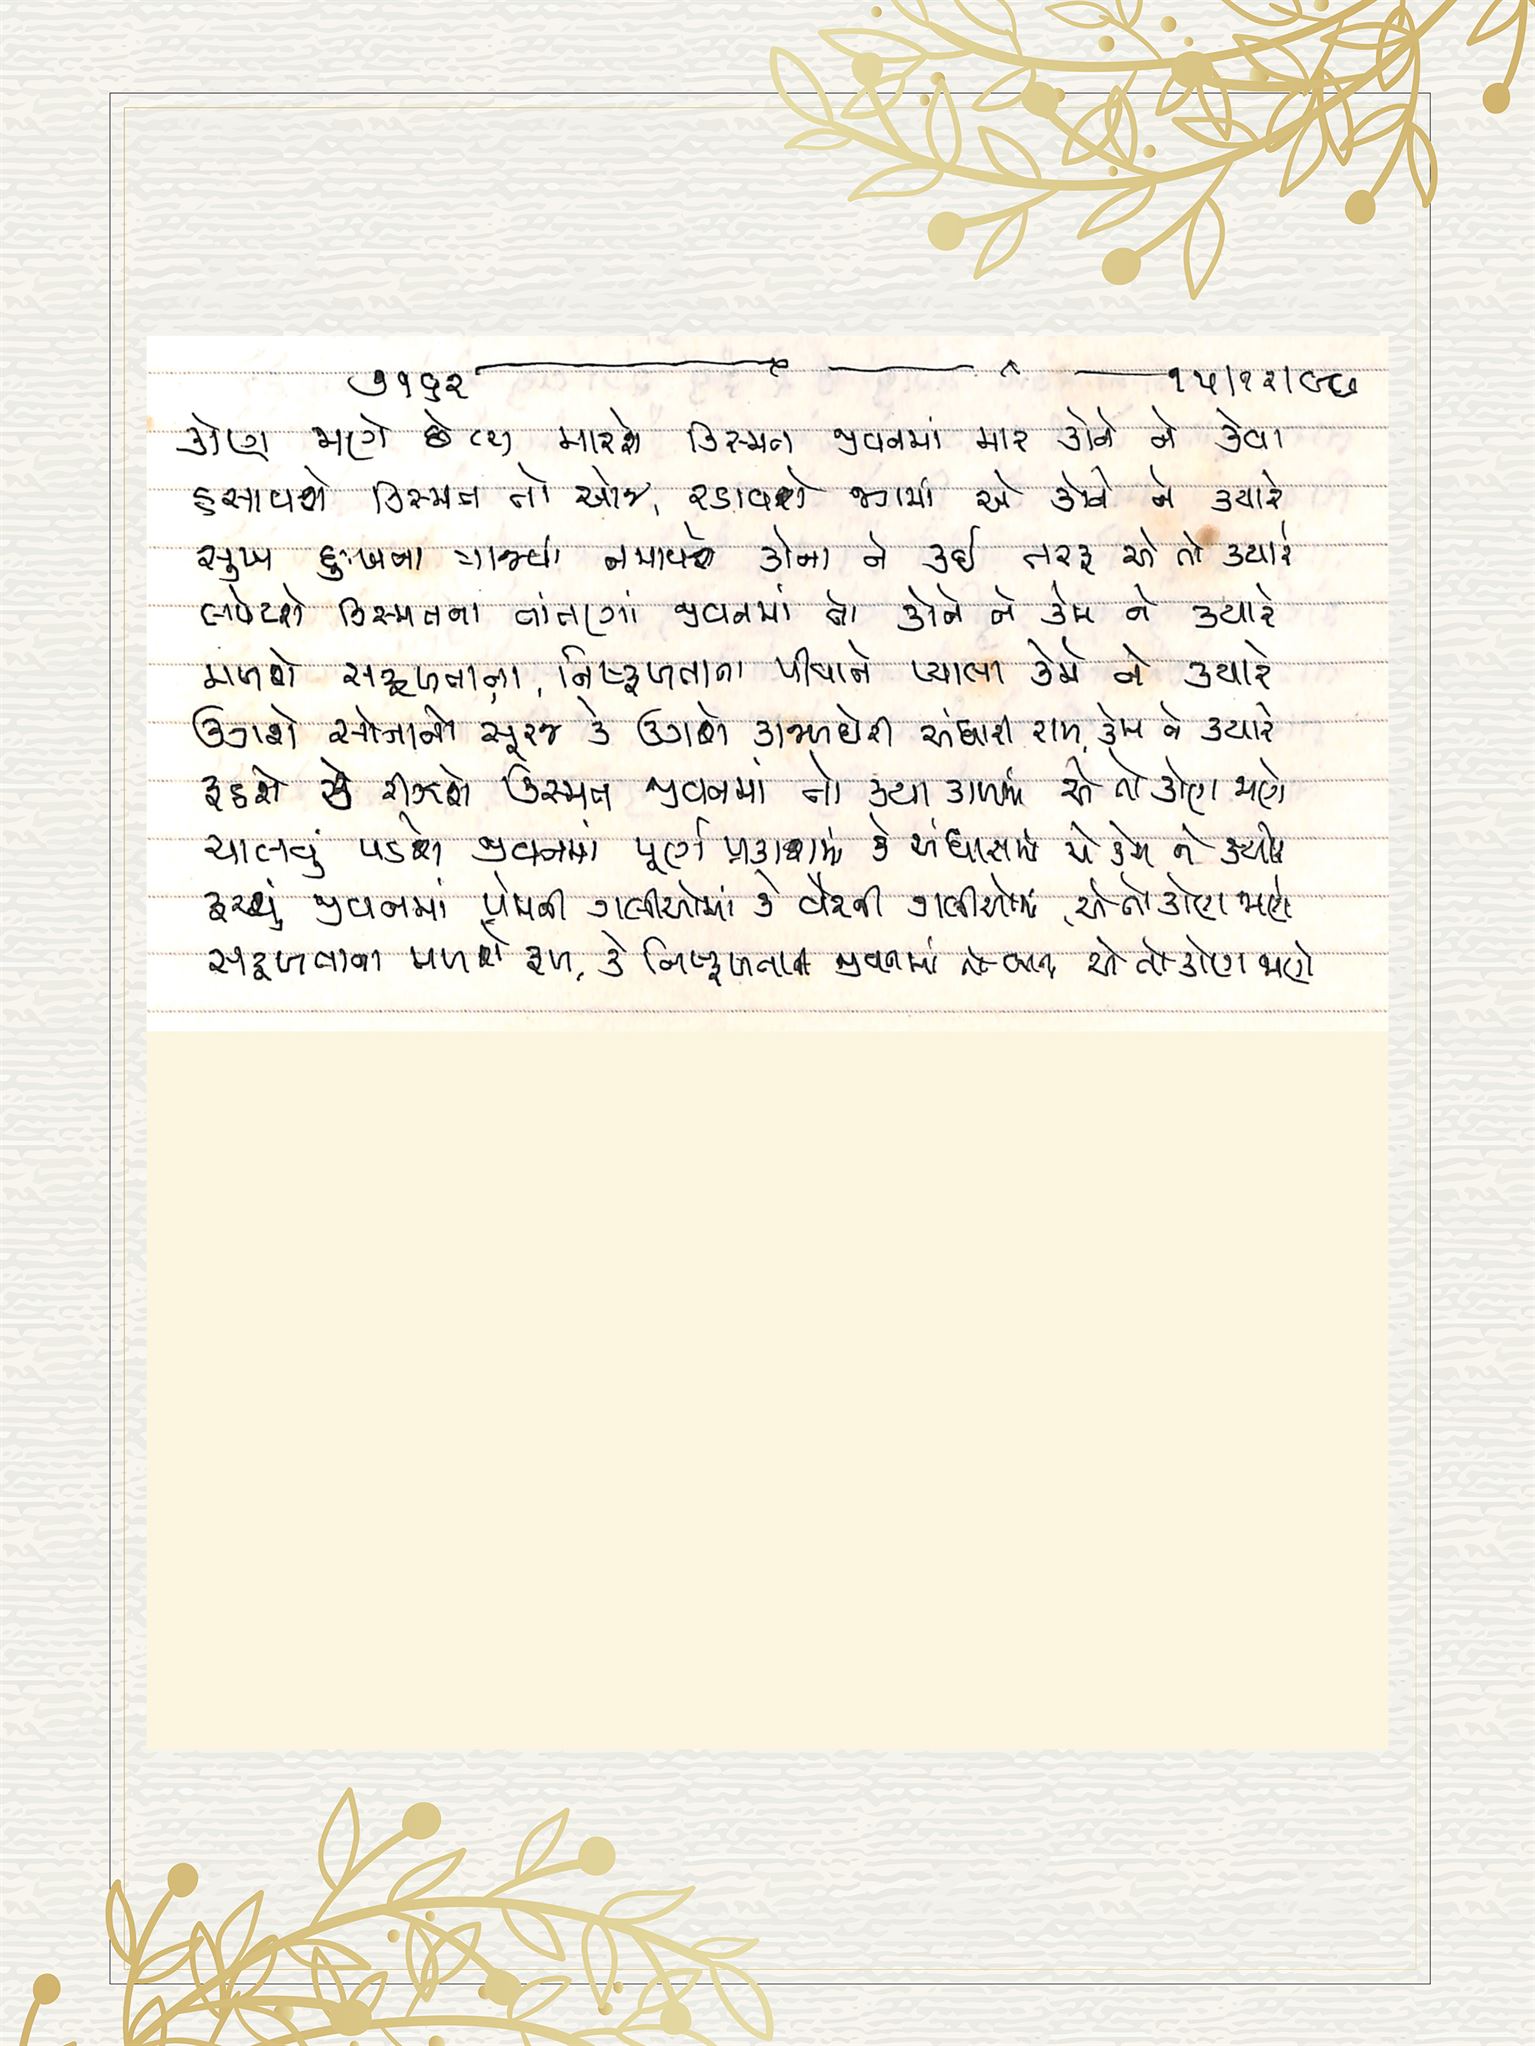 ૭૧૬૨ ૧૫/૧૨/૯૮
કોણ જાણે છે લાત મારશે કિસ્મત જીવનમાં માર કોને ને કેવા
હસાવશે કિસ્મત તો રોજ, રડાવશે જગમાં એ કોને ને ક્યારે
સુખ દુઃખના ત્રાજવાં નમાવશે કોના ને કઈ તરફ એ તો ક્યારે
લપેટશે કિસ્મતના તાંતણાં જીવનમાં તો કોને ને કેમ ને ક્યારે
મળશે સફળતાના, નિષ્ફળતાના પીવાને પ્યાલા કેમે ને ક્યારે
ઉગશે સોનાનો સૂરજ કે ઉગશે કાજળઘેરી અંધારી રાત, કેમ ને ક્યારે
રૂઠશે કે રીઝશે કિસ્મત જીવનમાં તો ક્યા કાળમાં એ તો કોણ જાણે
ચાલવું પડશે જીવનમાં પૂર્ણ પ્રકાશમાં કે અંધારામાં એ કેમ ને ક્યારે
ફરવું જીવનમાં પ્રેમની ગલીઓમાં કે વૈરની ગલીઓમાં, એ તો કોણ જાણે
સફળતાના મળશે ફળ, કે નિષ્ફળતાના જીવનમાં એ તો કોણ જાણે